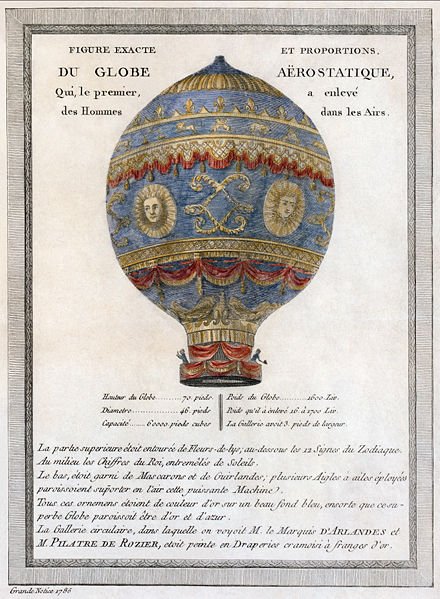 FIGURE EXACTE ET PROPORTIONS,
DU GLOBE AËROSTATIQUE,
Qui, le premier, a enlevé
des Hommes dans les Airs.
Hauteur du Globe..........70. pieds
Diametre..............46. pieds
Capacité......60000 pieds cubes
Poids du Globe..........1600 Liv.
Poids qu'il à enlevé 16 à 1700 Liv.
La Gallerie avoit 3. pieds de largeur.
La partie superieure étoit entourée de Fleurs-de-lys, au-dessous les 12 Signes du Zodiaque.
Au milieu les Chiffres du Roi, entremêlés de Soleils.
Le bas, étoit garni de Mascarons et de Guirlandes, plusieurs Aigles à ailes éployées
paroissoient suporter en l'air cette puissante Machine).
Tous ces ornemens étoient de couleur d'or sur un beau fond bleu, ensorte que ce su-
perbe Globe paroissoit être d'or et d'azur.
La Gallerie circulaire, dans laquelle on voyoit M. le Marquis D'ARLANDES et
M. PILATRE DE ROZIER, etoit peinte en Draperies cramoisi à franges d'or.
Grande Notice 1786